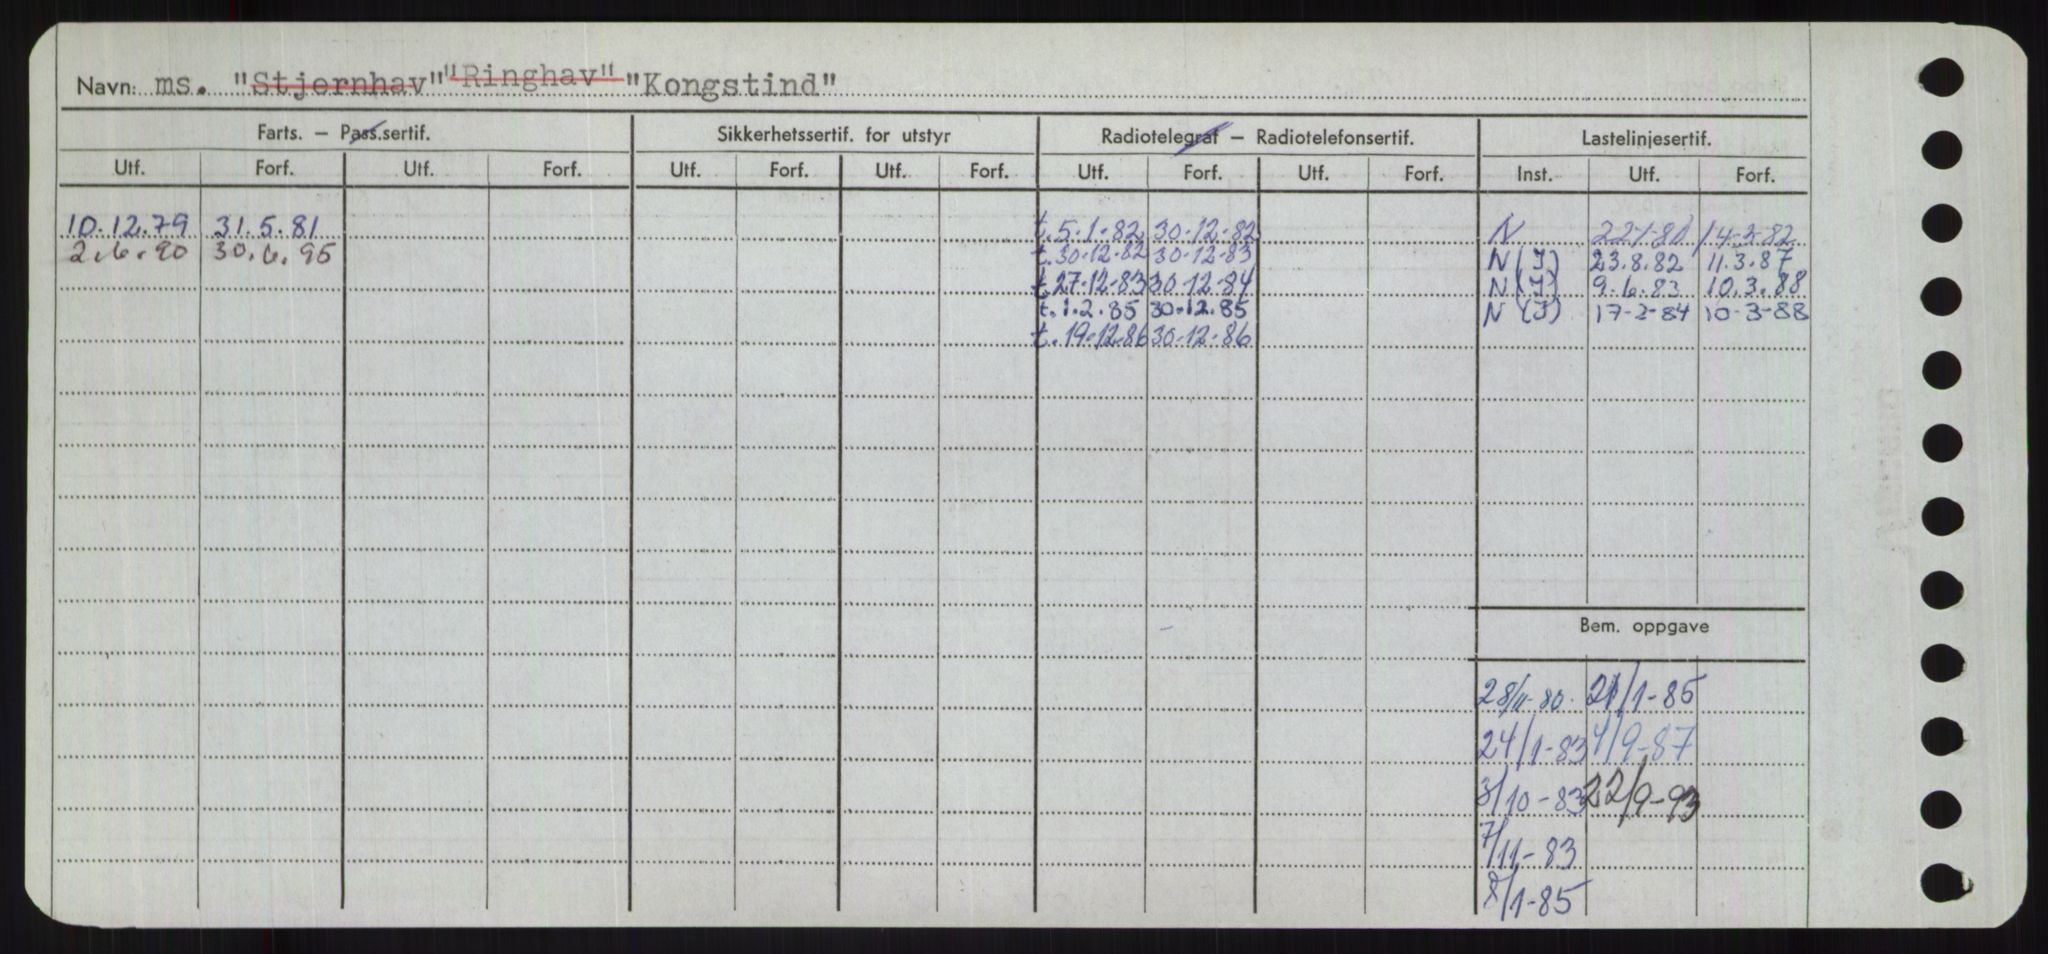 Navn: ms. "Stjernhav" "Ringhav" "Kongstind"
Farts. — Pass.sertif. Sikkerhetssertif. for utstyr Radiotelegraf — Radiotelefonsertif. Lastelinjesertif.
Utf. Forf. Utf. Forf. Utf. Forf. Utf. Forf. Utf. Forf. Utf. Forf. Inst. Utf. Forf.
10.12.79 31.5.81 t. 5-1-82 30-12-82 N 14-3-82
2.6.90 30.6.95 t. 30-12-82 30-12-83 N (I) 23.8.82 11.3.87
t. 27-12-83 30-12-84 N (I) 9.6.83 10.3.88
t. 1.2.85 30.12.85 N (I) 17-2-84 10-3-88
t. 19-12-86 30-12-86
Bem. oppgave
28/11-80. 21/1-85
24/1-83 4/9-87
3/10-83 22/9-93
7/11-83
8/1-85